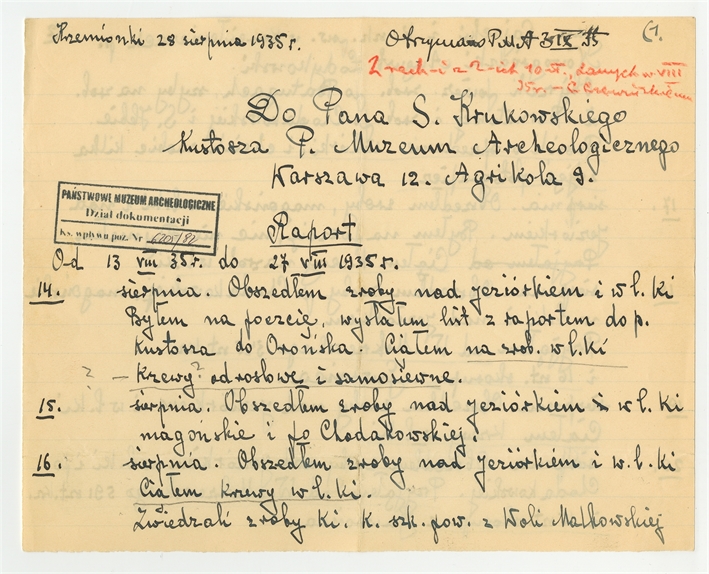 Krzemionki 28 sierpnia 1935 r.
Otrzymano P.M.A 3 IX 35
(1.
2 rach-i z 2-ich 10 zł., danych w VIII
35 r. – C
Do Pana S. Krukowskiego
Kustosza P. Muzeum Archeologicznego
Warszawa 12. Agrikola 9.
PAŃSTWOWE MUZEUM ARCHEOLOGICZNE
Dział dokumentacji
Ks. wpływu poz. Nr 6205/82
Raport
Od 13 VIII 35 r. do 27 VIII 1935 r.
14. sierpnia. Obszedłem zroby nad jeziórkiem i w l. Ki
Byłem na poczcię, wysłałem list z raportem do p.
Kustosza do Orońska. Ciąłem na zrob. w l. Ki
? – krzewy? odroslowe i samosiewne.
15. sierpnia. Obszedłem zroby nad jeziórkiem i w l. Ki
magońskie i po Chodakowskiej
16. sierpnia. Obszedłem zroby nad jeziórkiem i w. l. Ki
Ciąłem krzewy w l. Ki.
Zwiedzali zroby Ki. K. szk. pow. z Woli Malkowskiej